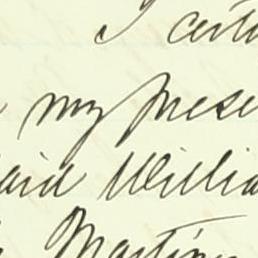 I certi
my prese
aid Willia
Martin